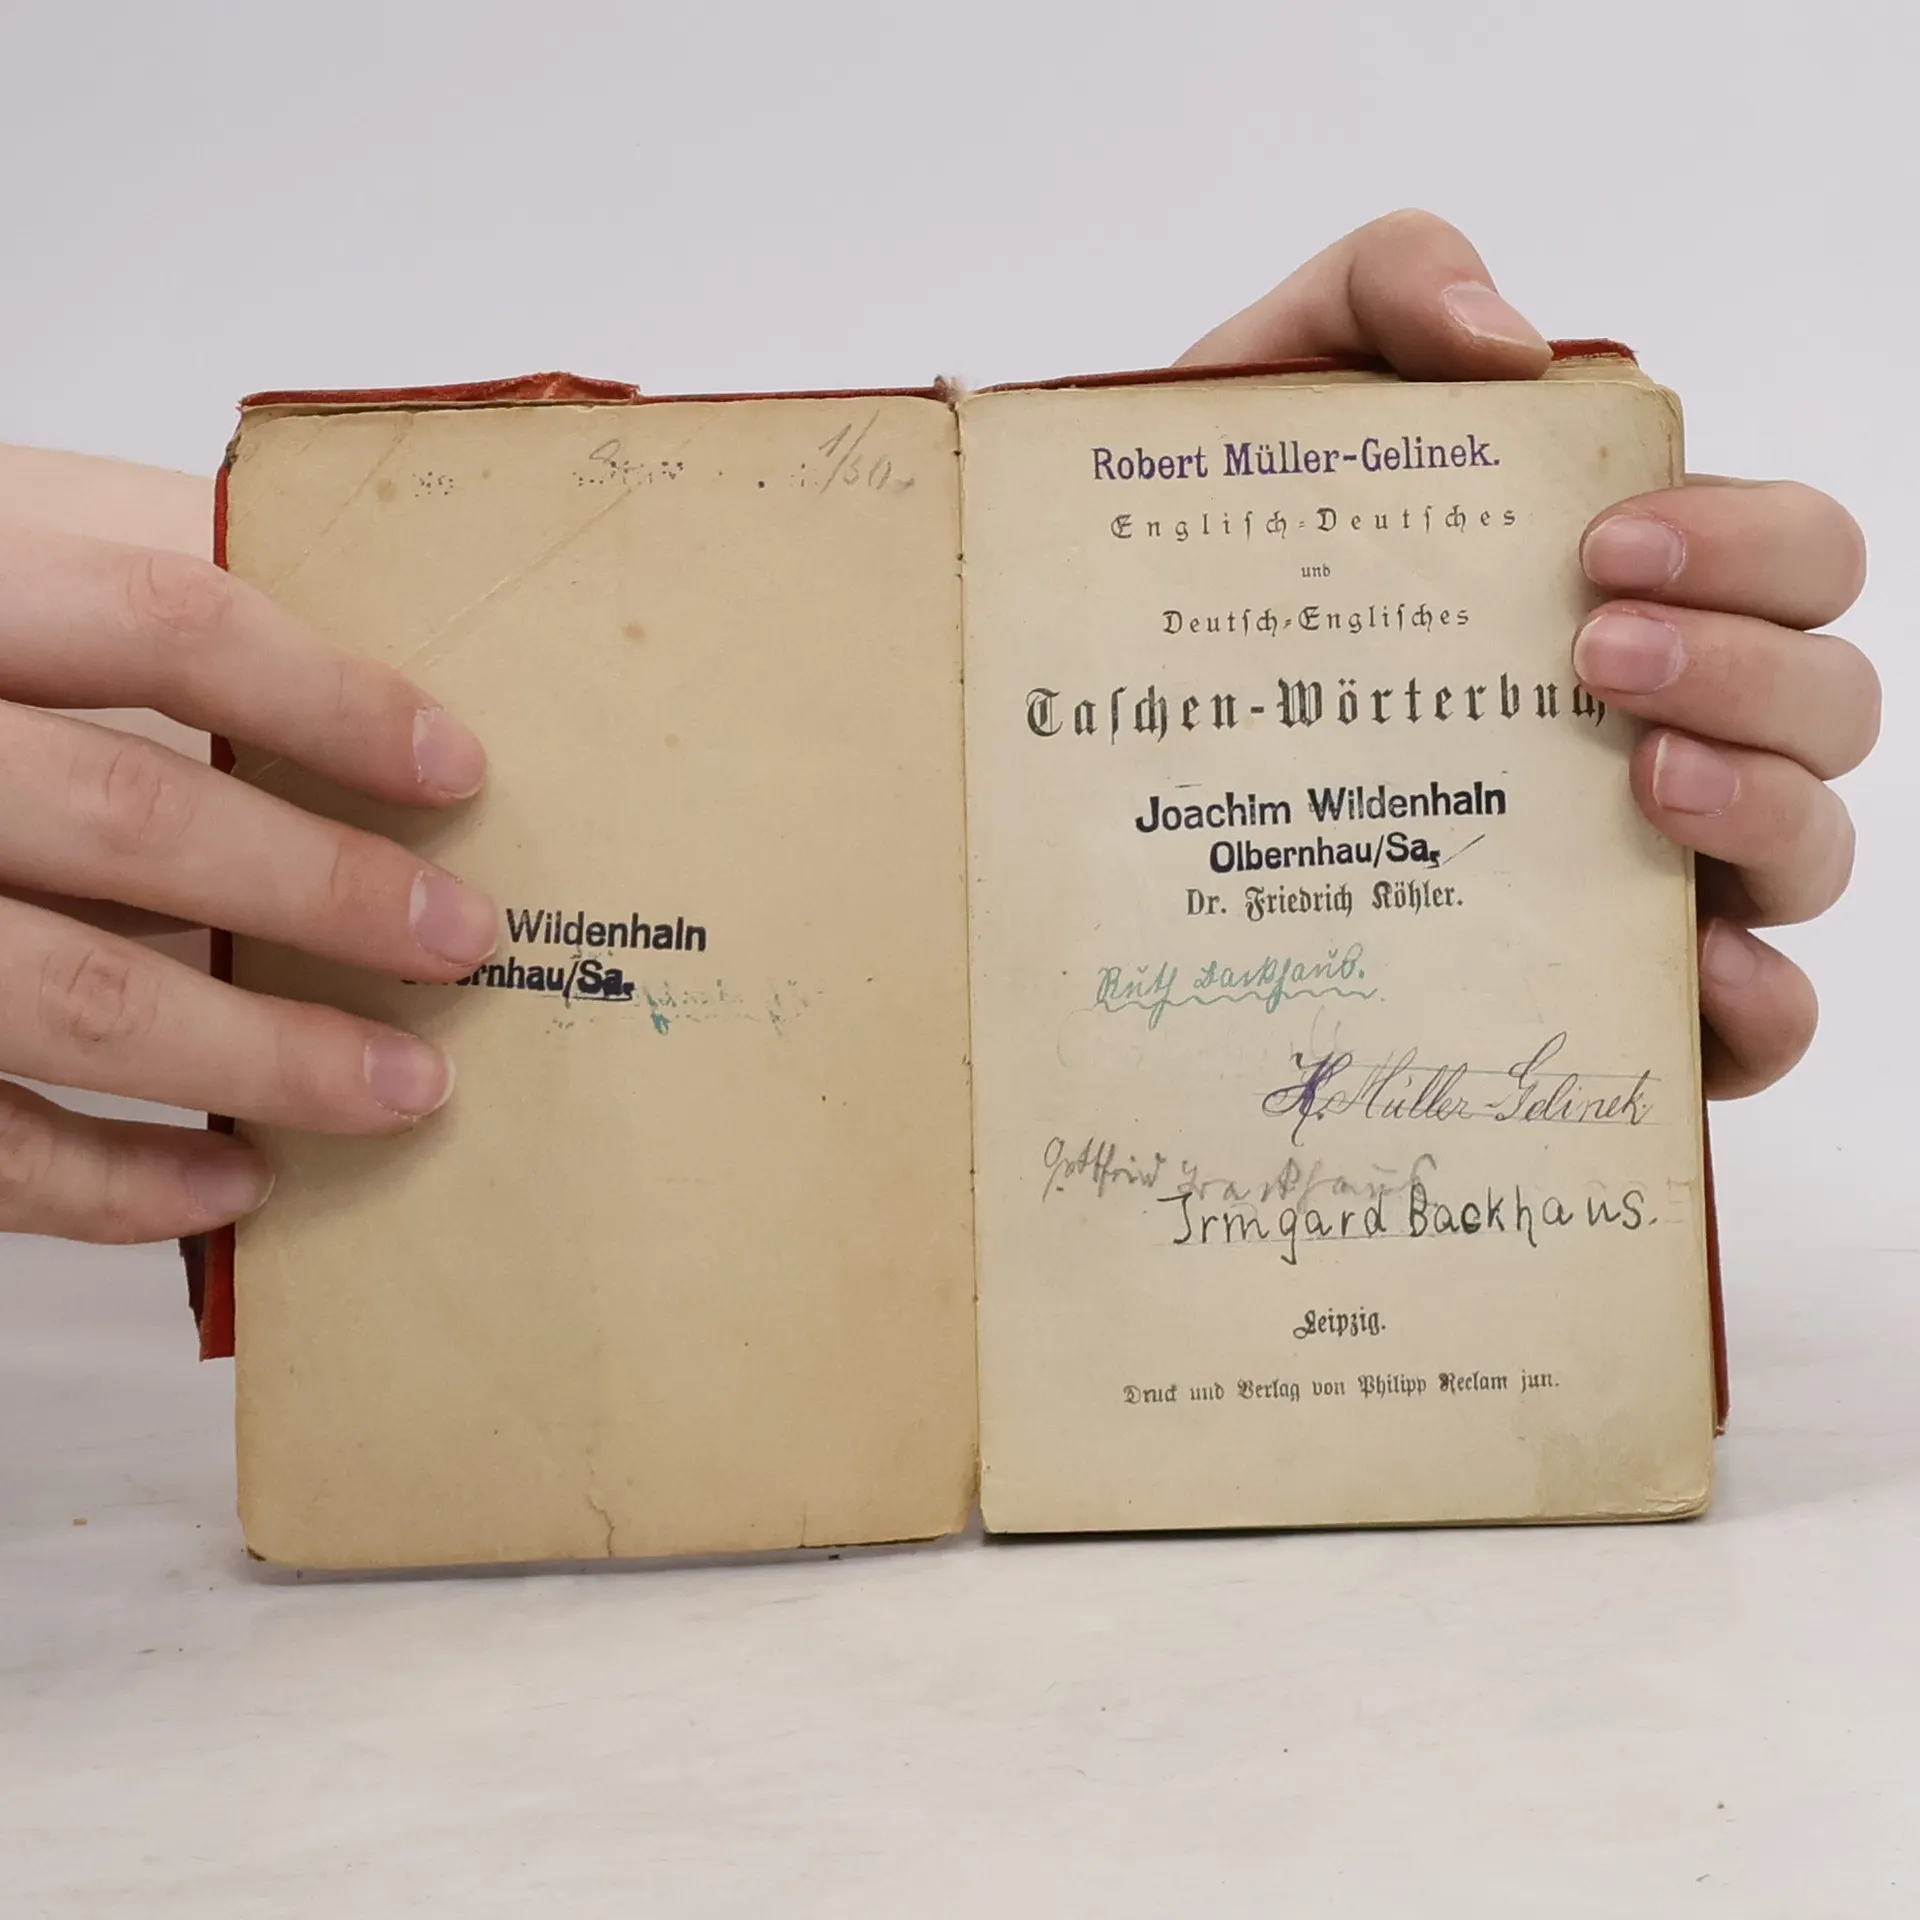 1/50
Wildenhaln
rnhau/Sa.
Robert Müller-Gelinek.
Engliſch-Deutſches
und
Deutſch-Engliſches
Taſchen-Wörterbuch
Joachim Wildenhaln
Olbernhau/Sa.
Dr. Friedrich Köhler.
Ruth Backhaus.
K. Müller-Gelinek
Gottfried Backhaus
Irmgard Backhaus.
Leipzig.
Druck und Verlag von Philipp Reclam jun.